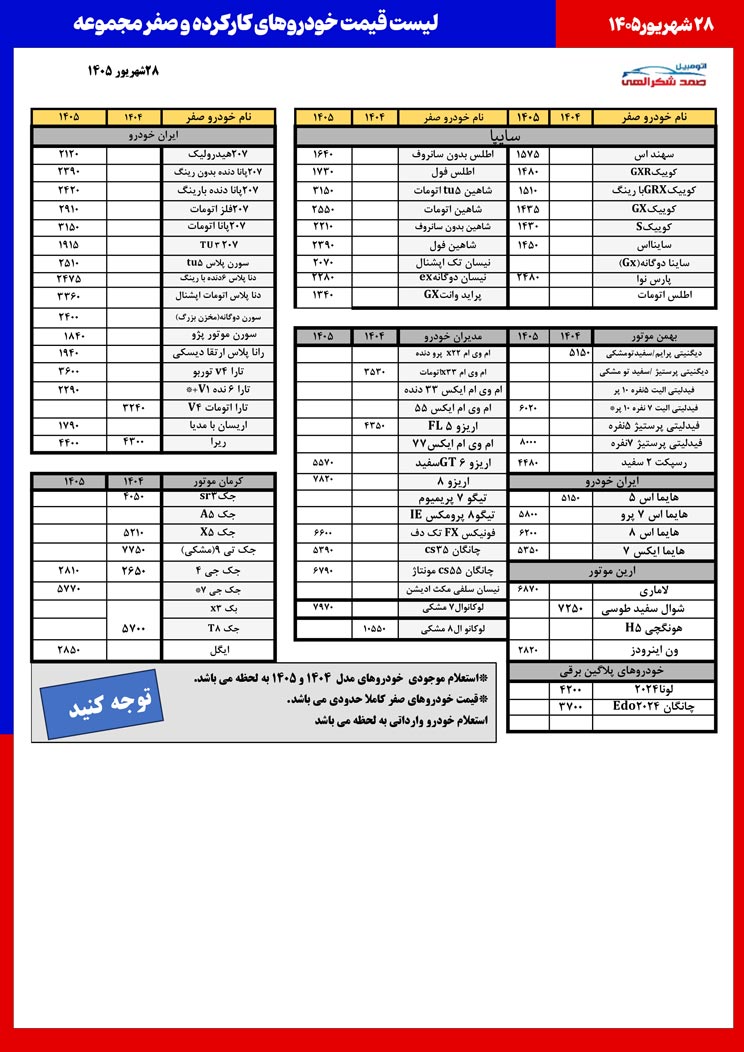 ۲۸ شهریور۱۴۰۵
لیست قیمت خودروهای کارکرده و صفر مجموعه
اتومبیل
صمد شکرالهی
۲۸شهریور ۱۴۰۵
نام خودرو صفر ۱۴۰۴ ۱۴۰۵ نام خودرو صفر ۱۴۰۴ ۱۴۰۵
سایپا
سهند اس ۱۵۷۵ اطلس بدون سانروف ۱۶۴۰
کوییکGXR ۱۴۸۰ اطلس فول ۱۷۳۰
کوییکGRXبا رینگ ۱۵۱۰ شاهین tu۵ اتومات ۳۱۵۰
کوییکGX ۱۴۳۵ شاهین اتومات ۲۵۵۰
کوییکS ۱۴۳۰ شاهین بدون سانروف ۲۲۱۰
سایناس ۱۴۵۰ شاهین فول ۲۳۹۰
ساینا دوگانه(Gx) نیسان تک اپشنال ۲۰۷۰
پارس نوا ۲۴۸۰ نیسان دوگانهex ۲۲۸۰
اطلس اتومات پراید وانتGX ۱۳۴۰
بهمن موتور ۱۴۰۴ ۱۴۰۵
دیگنیتی پرایم/سفیدتومشکی ۵۱۵۰
دیگنیتی پرستیژ /سفید تو مشکی
فیدلیتی الیت ۵نفره ۱۰ پر
فیدلیتی الیت ۷ نفره ۱۰ پر* ۶۰۲۰
فیدلیتی پرستیژ ۵نفره
فیدلیتی پرستیژ ۷نفره ۸۰۰۰
رسپکت ۲ سفید ۴۴۸۰
ایران خودرو
هایما اس ۵ ۵۱۵۰
هایما اس ۷ پرو ۵۸۰۰
هایما اس ۸ ۶۲۰۰
هایما ایکس ۷ ۵۳۵۰
آرین موتور
لاماری ۶۸۷۰
شوال سفید طوسی ۷۲۵۰
هونگچی H۵
ون اینرودز ۲۸۲۰
خودروهای پلاگین برقی
لونا۲۰۲۴ ۴۲۰۰
چانگان Edo۲۰۲۴ ۳۷۰۰
مدیران خودرو ۱۴۰۴ ۱۴۰۵
ام وی ام x۲۲ پرو دنده
ام وی ام x۳۳اتومات ۳۵۳۰
ام وی ام ایکس ۳۳ دنده
ام وی ام ایکس ۵۵
اریزو ۵ FL ۴۳۵۰
ام وی ام ایکس۷۷
اریزو ۶ GTسفید ۵۵۷۰
اریزو ۸ ۷۸۲۰
تیگو ۷ پریمیوم
تیگو۸ پرومکس IE
فونیکس FX تک دف ۶۶۰۰
چانگان cs۳۵ ۵۳۹۰
چانگان cs۵۵ مونتاژ ۶۷۹۰
نیسان سلفی مکث ادیشن
لوکانوال۷ مشکی ۷۹۷۰
لوکانو ال۸ مشکی ۱۰۵۵۰
نام خودرو صفر ۱۴۰۴ ۱۴۰۵
ایران خودرو
۲۰۷هیدرولیک ۲۱۲۰
۲۰۷پانا دنده بدون رینگ ۲۳۹۰
۲۰۷پانا دنده بارینگ ۲۴۲۰
۲۰۷فلز اتومات ۲۹۱۰
۲۰۷پانا اتومات ۳۱۵۰
TU۳ ۲۰۷ ۱۹۱۵
سورن پلاس tu۵ ۲۵۱۰
دنا پلاس ۶دنده با رینگ ۲۴۷۵
دنا پلاس اتومات اپشنال ۳۳۶۰
سورن دوگانه(مخزن بزرگ) ۲۴۰۰
سورن موتور پژو ۱۸۴۰
رانا پلاس ارتقا دیسکی ۱۹۴۰
تارا v۴ توربو ۳۶۰۰
تارا ۶ نده V۱+* ۲۲۹۰
تارا اتومات V۴ ۳۲۴۰
آریسان با مدیا ۱۷۹۰
ریرا ۴۳۰۰ ۴۴۰۰
کرمان موتور ۱۴۰۴ ۱۴۰۵
جکsr۳ ۴۰۵۰
جک A۵
جک X۵ ۵۲۱۰
جک تی ۹(مشکی) ۷۷۵۰
جک جی ۴ ۲۶۵۰ ۲۸۱۰
جک جی ۷* ۵۷۷۰
بک x۳
جک T۸ ۵۷۰۰
ایگل ۲۸۵۰
*استعلام موجودی خودروهای مدل ۱۴۰۴ و ۱۴۰۵ به لحظه می باشد.
*قیمت خودروهای صفر کاملا حدودی می باشد.
استعلام خودرو وارداتی به لحظه می باشد
توجه کنید